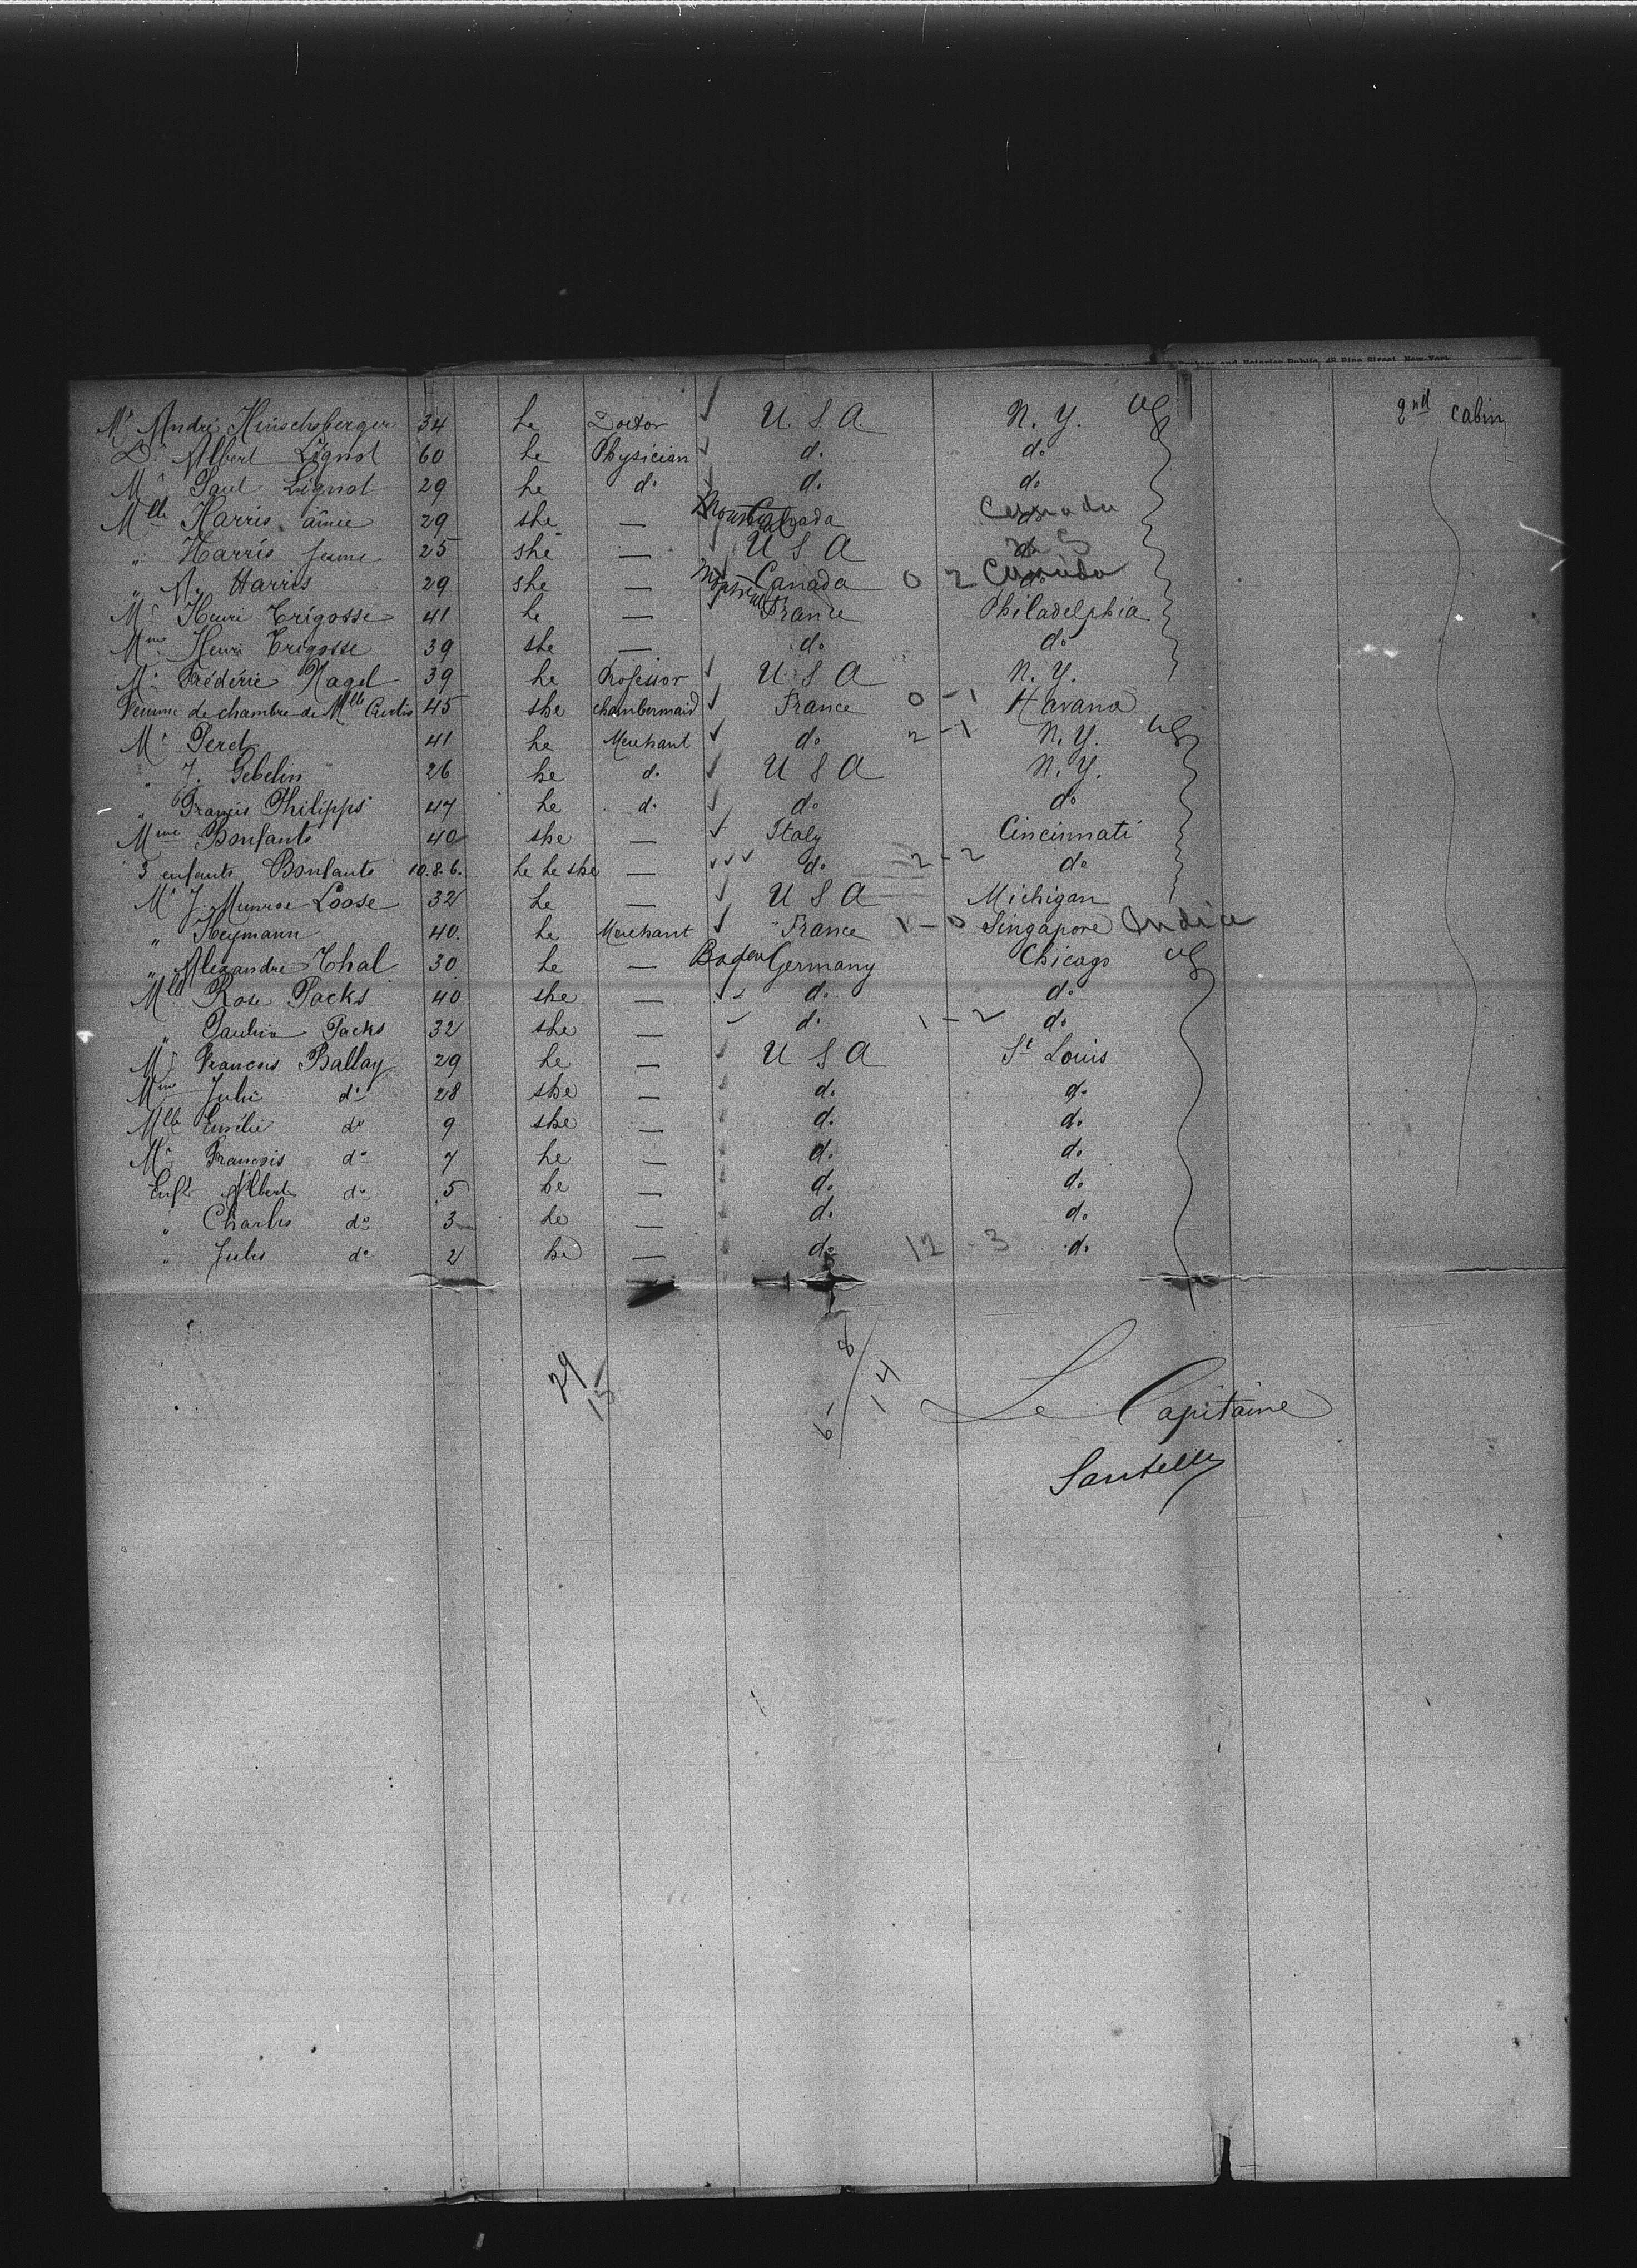 Brokers and Notaries Public, 48 Pine Street, New-York
2nd cabin
Mr André Hirschsberger 34 he Doctor U. S. A. N. Y.
Dr Albert Lignot 60 he Physician do do
Mr Paul Lignot 29 he do do do
Mlle Harris aînée 29 she — Montreal Canada do Canada
" Harris Jeune 25 she — U S A do
" A. Harris 29 she — Montreal Canada 0 2 do Canada
Mr Henri Trigosse 41 he — France Philadelphia
Mme Henri Trigosse 39 she — do do
Mr Frédéric Nagel 39 he Professor U S A N. Y.
Femme de chambre de Mlle Curtis 45 she chambermaid France 0 - 1 Havana
Mr Peret 41 he Merchant do 2 - 1 N. Y.
" J. Gebelin 26 he do U S A N. Y.
" Francis Philipps 47 he do do do
Mme Bonfante 40 she — Italy Cincinnati
3 enfants Bonfante 10.8.6. he he she — do 2 - 2 do
Mr J. Munroe Loose 32 he — U S A Michigan
" Heymann 40. he Merchant France 1 - 0 Singapore India
" Alexandre Thal 30 he — Baden Germany Chicago
Mlle Rose Packs 40 she — do do
" Paulina Packs 32 she — do 1 - 2 do
Mr François Ballay 29 he — U S A St Louis
Mme Julie do 28 she — do do
Mlle Emélie do 9 she — do do
Mr François do 7 he — do do
Enft Albert do 5 he — do do
" Charles do 3 he — do do
" Jules do 2 he — do 12 - 3 do
29
15
6 - 8
14
Le Capitaine
Santelli